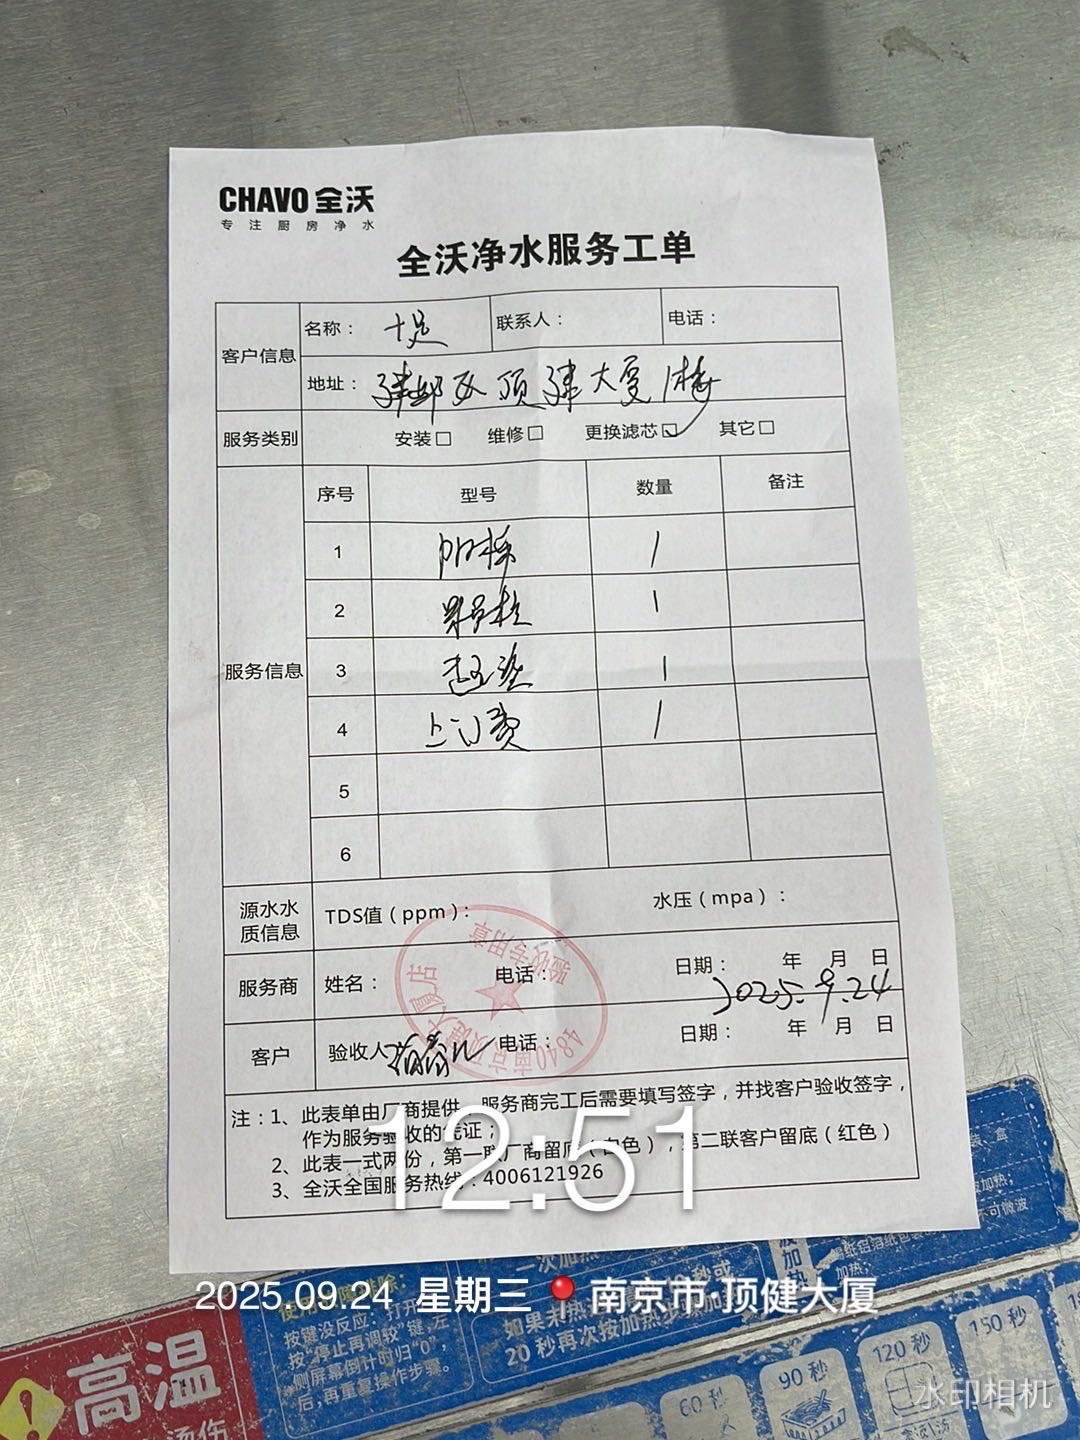 CHAVO 全沃
专注厨房净水
全沃净水服务工单
客户信息 名称： 十足 联系人： 电话：
地址： 建邺区顶建大厦1楼
服务类别 安装□ 维修□ 更换滤芯☑ 其它□
服务信息 序号 型号 数量 备注
1 阻垢 1
2 1
3 1
4 上门费 1
5
6
源水水质信息 TDS值（ppm）： 水压（mpa）：
服务商 姓名： 电话： 日期： 年 月 日
2025.9.24
客户 验收人 电话： 日期： 年 月 日
4840南京顶健大厦店
验收专用章
注：1、此表单由厂商提供，服务商完工后需要填写签字，并找客户验收签字，
作为服务验收的凭证；
2、此表一式两份，第一联厂商留底（白色），第二联客户留底（红色）
3、全沃全国服务热线：4006121926
12:51
2025.09.24 星期三 南京市·顶健大厦
按键没反应：打开门
按“停止再调较”键，左
侧屏幕倒计时归“0”，
后，再重复操作步骤。
20秒再次按加热
高温
烫伤
60秒
90秒
120秒
150秒
水印相机